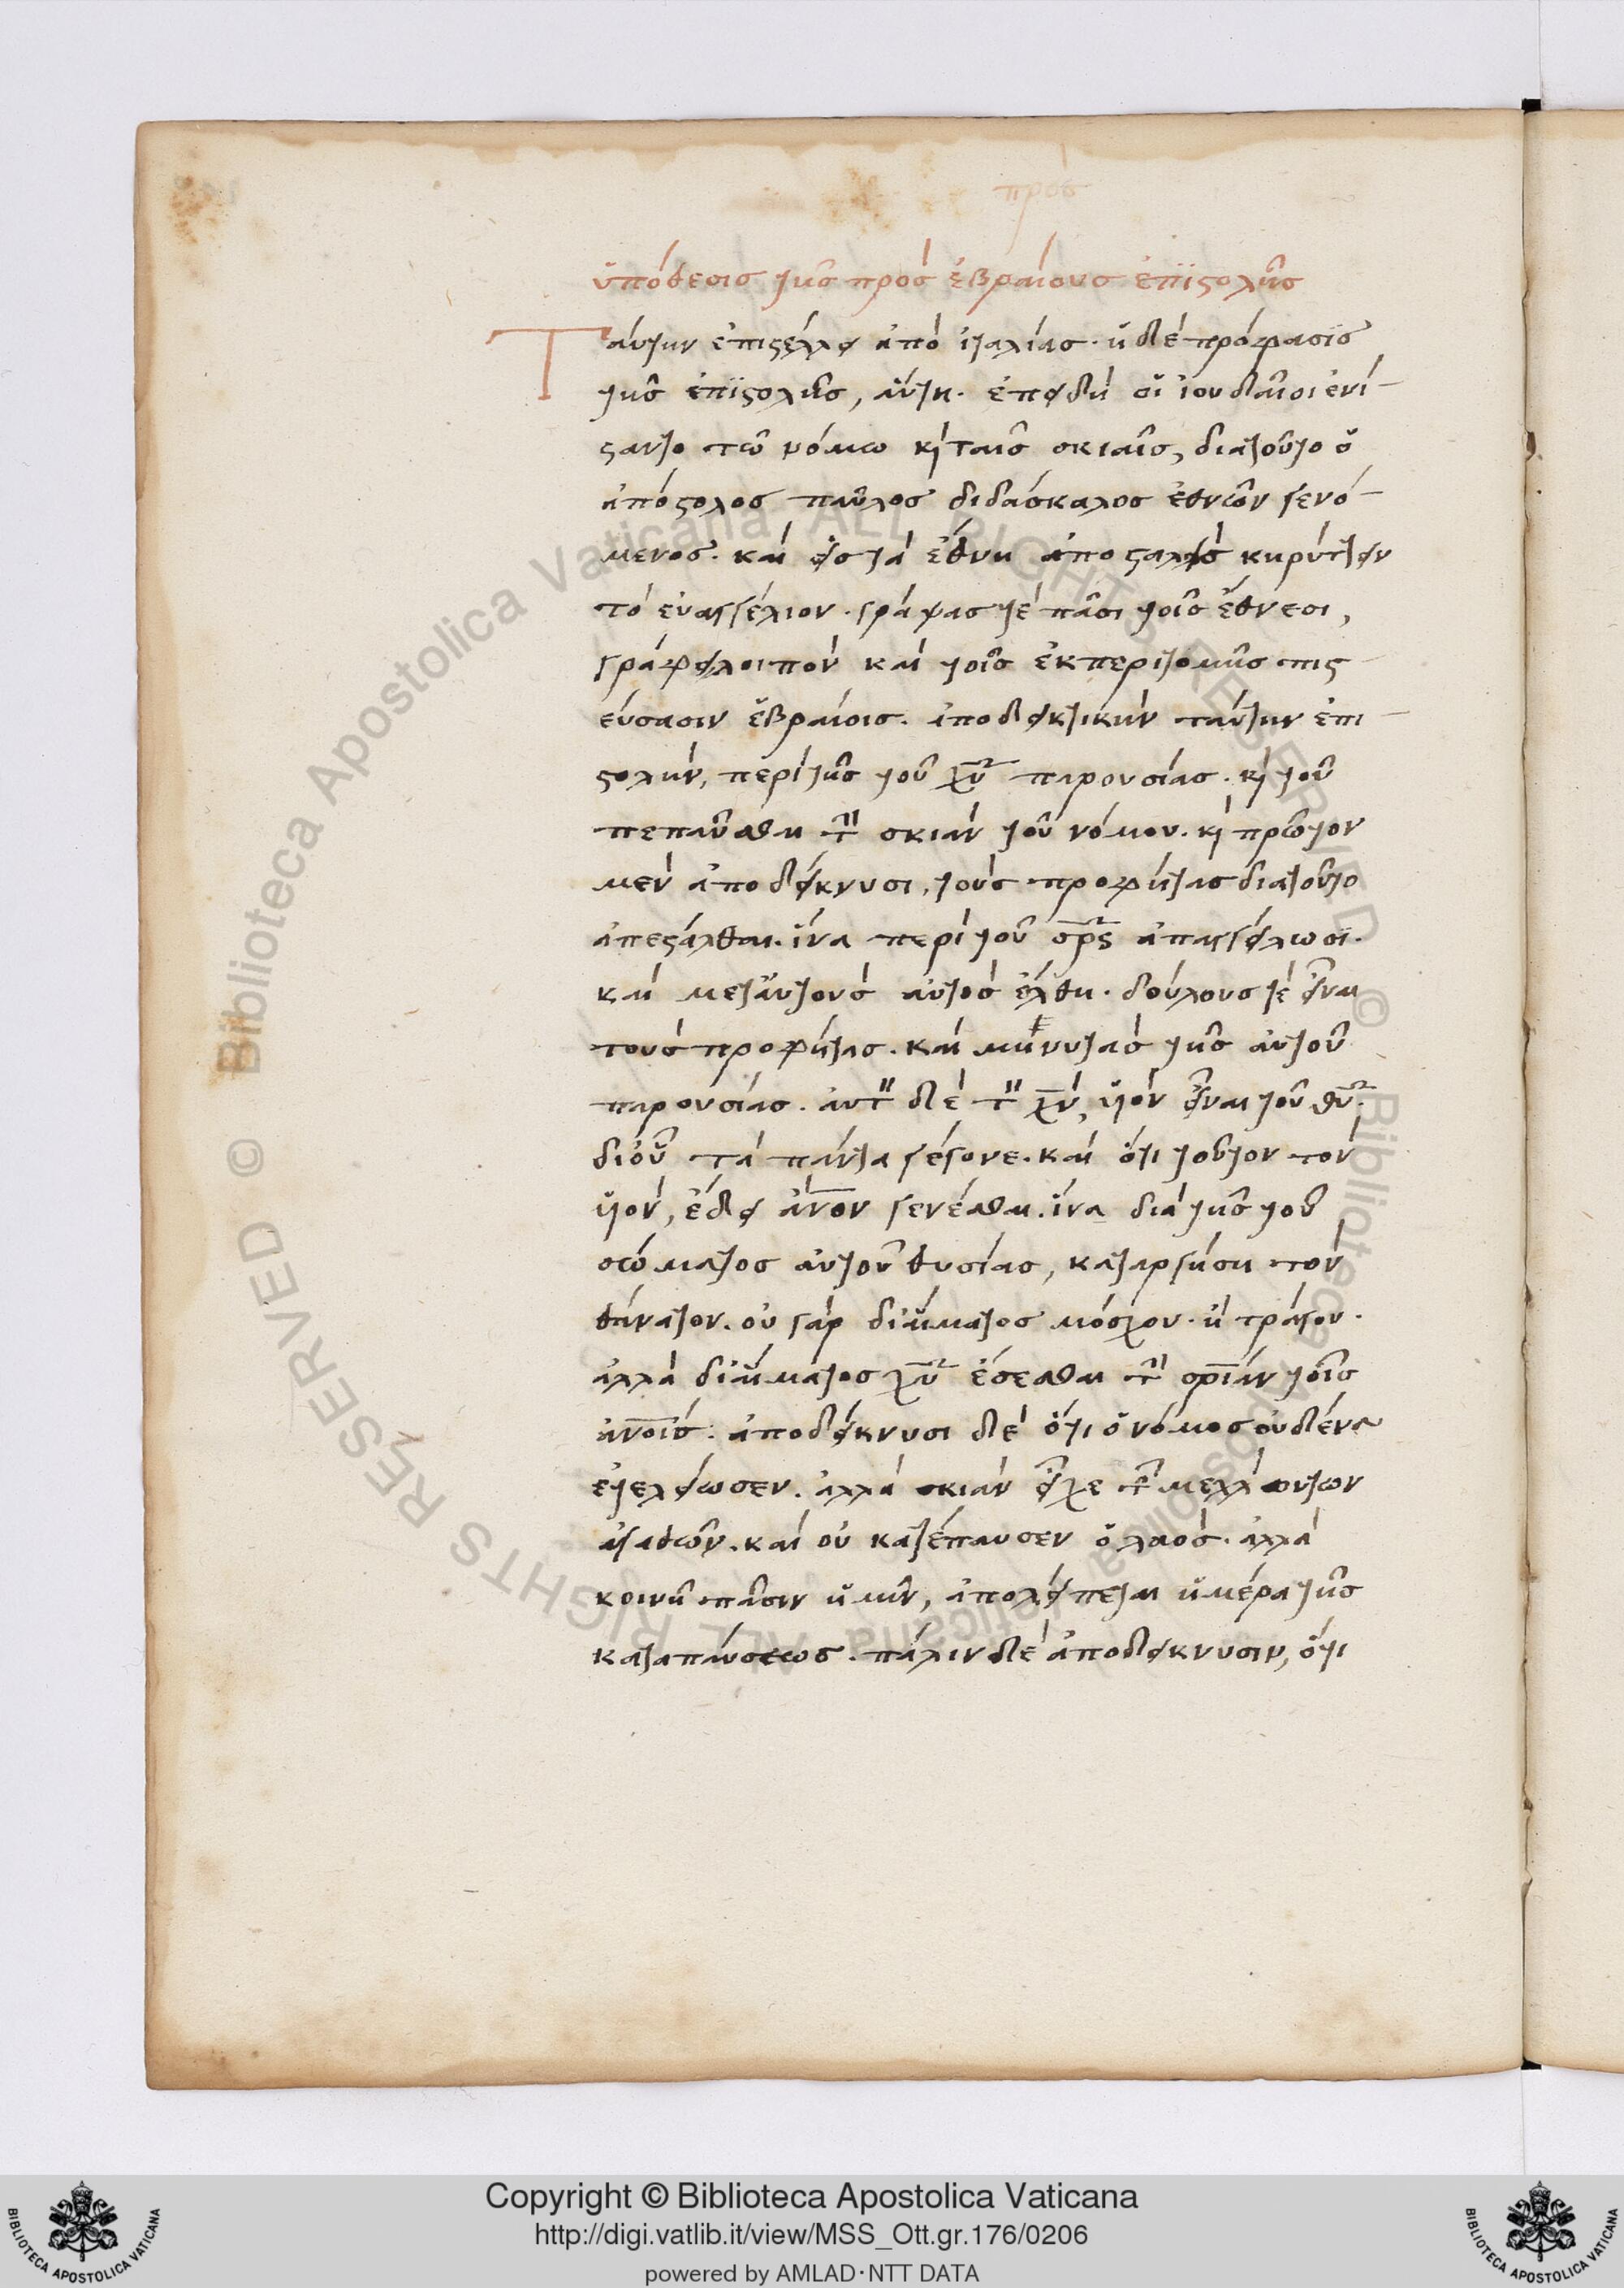 πρὸσ
ὑπόθεσισ τῆσ πρὸσ ἑβραίουσ ἐπϊστολῆσ
Ταύτην ἐπιστέλλει ἀπὸ ἰταλίασ· ἡ δὲ πρόφασϊσ
τῆσ ἐπϊστολῆσ, αὕτη· ἐπειδὴ οἱ ἰουδαῖοι ἐνί-
σταντο τῶ νόμω κὶ ταῖσ σκιαῖσ, διατοῦτο ὁ
ἀπόστολοσ παῦλοσ διδάσκαλοσ ἐθνῶν γενό-
μενοσ· καὶ εἰσ τὰ ἔθνη ἀποσταλεὶσ κηρύττειν
τὸ εὐαγγέλιον· γράψασ τὲ πᾶσι τοῖσ ἔθνεσι,
γράφει λοιπὸν καὶ τοῖσ ἐκπεριτομῆσ πισ
εύσασιν ἑβραίοισ· ἀποδεικτικὴν ταύτην ἐπι-
στολὴν, περὶ τῆσ τοῦ χῦ παρουσίασ· κὶ τοῦ
πεπαῦσθαι τὴν σκιὰν τοῦ νόμου· κὶ πρῶτον
μὲν ἀποδείκνυσι, τοὺσ προφήτασ διατοῦτο
ἀπεστάλθαι· ἵνα περὶ τοῦ σρ̅ς ἀπαγγείλωσϊ·
καὶ μετ' αὐτοὺσ αὐτὸσ ἔλθη· δούλουσ τὲ εἶναι
τοὺσ προφήτασ· καὶ μηνυτὰσ τῆσ αὐτοῦ
παρουσίασ· αὐτὸν δὲ τὸν χν̅, υἱὸν εἶναι τοῦ θῦ·
διοῦ τὰ πάντα γέγονε· καὶ ὅτι τοῦτον τὸν
υἱὸν, ἔδει ἄνον γενέσθαι· ἵνα διὰ τῆσ τοῦ
σώματοσ αὐτοῦ θυσίασ, καταργήση τὸν
θάνατον· οὐ γὰρ δι' αἵματοσ μόσχου· ἢ τράγου·
ἀλλὰ δι' αἵματοσ χῦ ἔσεσθαι τὴν σρ̅ίαν τοῖσ
ἀνοισ· ἀποδείκνυσι δὲ ὅτι ὁ νόμοσ οὐδένα
ἐτελείωσεν· ἀλλὰ σκιὰν εἶχε τῶν μελλόντων
ἀγαθῶν· καὶ οὐ κατέπαυσεν ὁ λαὸσ· ἀλλὰ
κοινῆ πᾶσιν ἡμῖν, ἀπολείπεται ἡμέρα τῆσ
καταπαύσεωσ· πάλιν δὲ ἀποδείκνυσιν, ὅτι
Copyright © Biblioteca Apostolica Vaticana
http://digi.vatlib.it/view/MSS_Ott.gr.176/0206
powered by AMLAD·NTT DATA
BIBLIOTECA APOSTOLICA VATICANA
BIBLIOTECA APOSTOLICA VATICANA